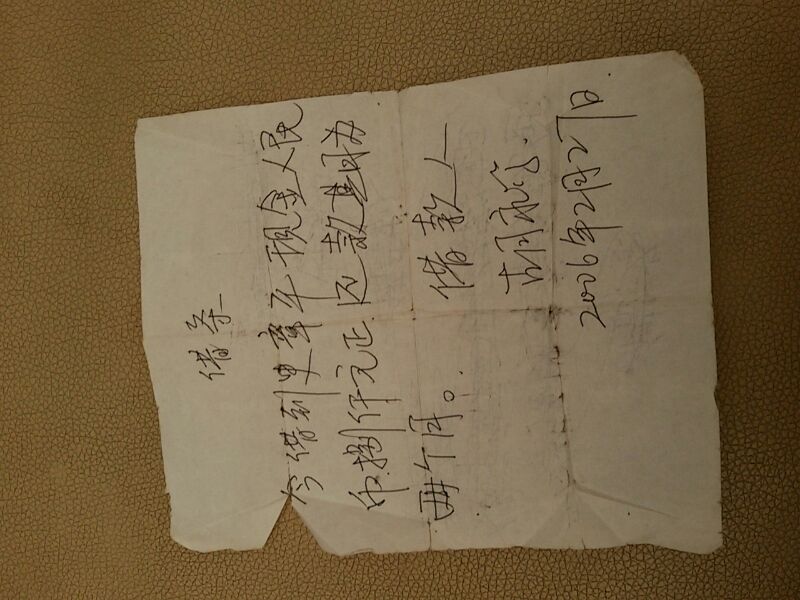 借条
今借到史章平现金人民
币捌仟元正 还款其日为
两个月。
借款人
胡永
2006年2月27日